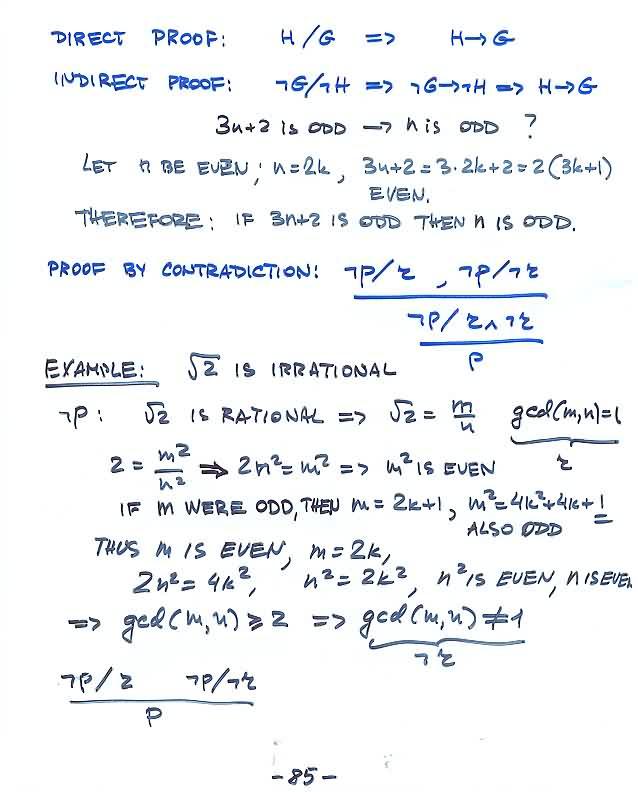 DIRECT PROOF: H/G => H→G
INDIRECT PROOF: ¬G/¬H => ¬G→¬H => H→G
3n+2 IS ODD → n IS ODD ?
LET n BE EVEN; n=2k, 3n+2=3·2k+2=2(3k+1)
EVEN.
THEREFORE: IF 3n+2 IS ODD THEN n IS ODD.
PROOF BY CONTRADICTION: ¬P/r , ¬P/¬r
¬P/ r∧¬r
P
EXAMPLE: √2 IS IRRATIONAL
¬P: √2 IS RATIONAL => √2 = m/n gcd(m,n)=1
r
2 = m²/n² => 2n²=m² => m² IS EVEN
IF m WERE ODD, THEN m = 2k+1, m²=4k²+4k+1
ALSO ODD
THUS m IS EVEN, m=2k,
2n²=4k², n²=2k², n² IS EVEN, n IS EVEN
=> gcd(m,n)≥2 => gcd(m,n)≠1
¬r
¬P/r ¬P/¬r
P
-85-